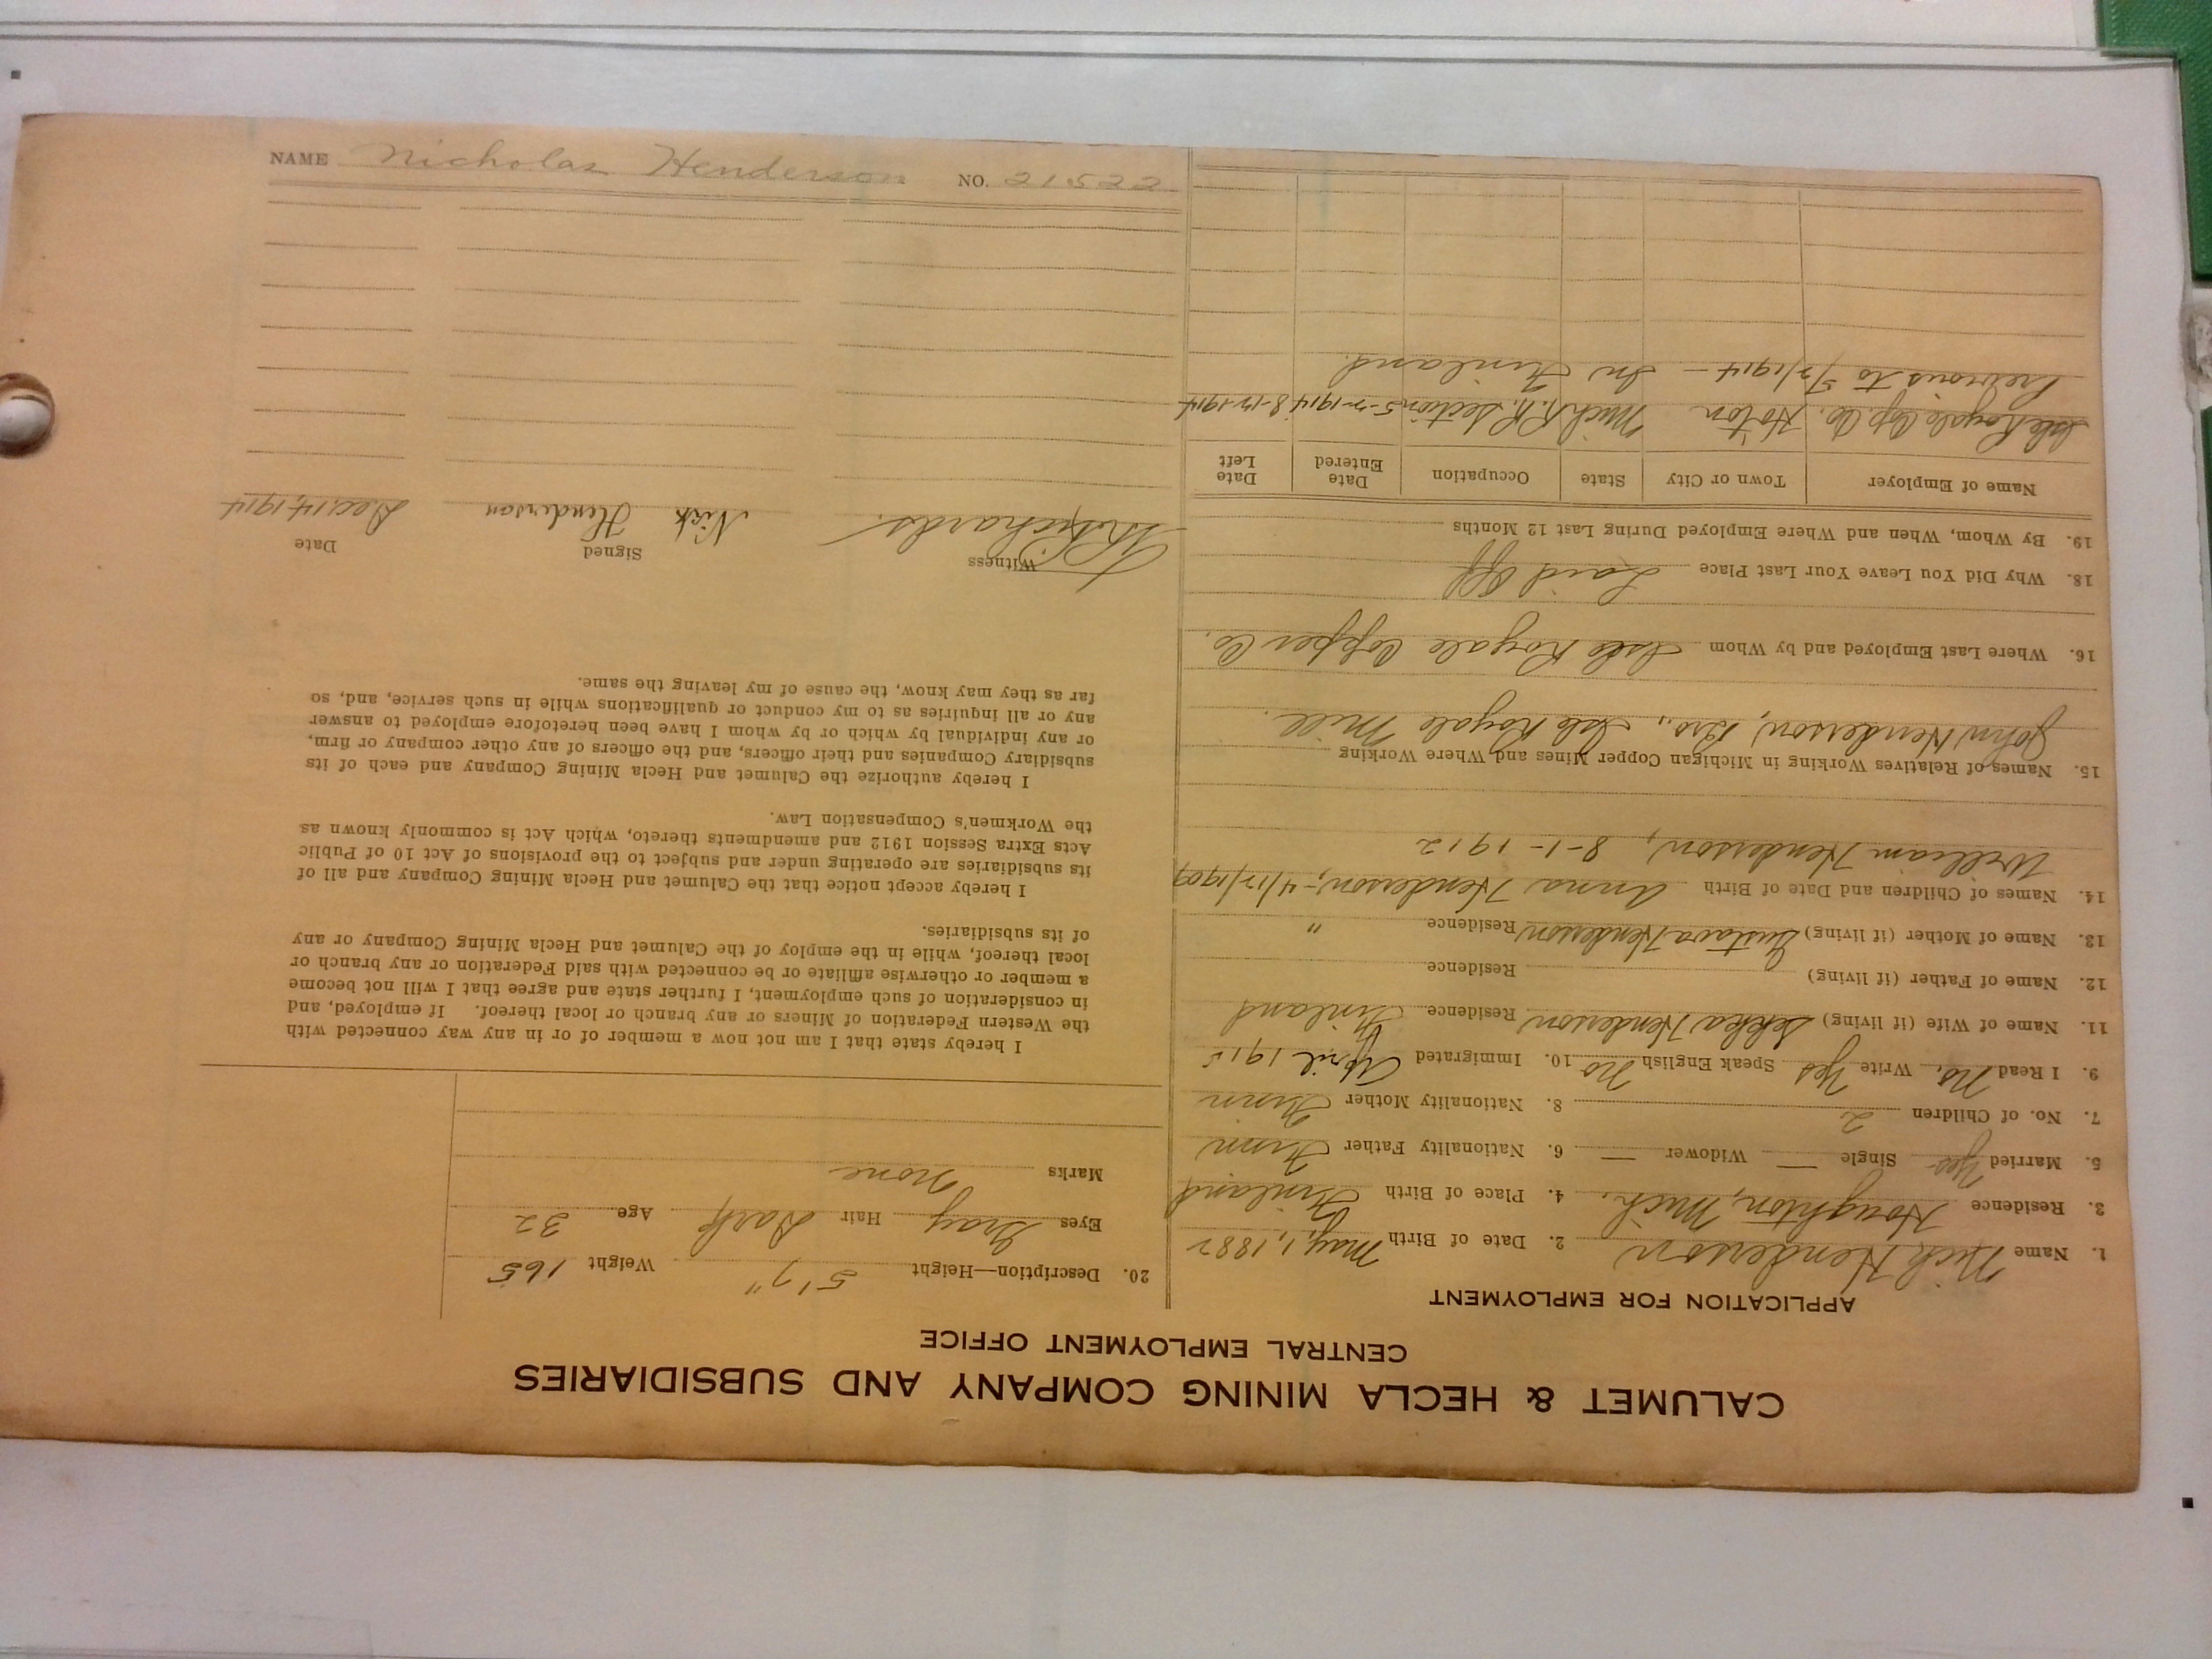 CALUMET & HECLA MINING COMPANY AND SUBSIDIARIES
CENTRAL EMPLOYMENT OFFICE
APPLICATION FOR EMPLOYMENT
1. Name Nick Henderson 2. Date of Birth May, 1, 1882
3. Residence Houghton, Mich. 4. Place of Birth Finland
5. Married Yes Single — Widower — 6. Nationality Father Finn
7. No. of Children 2 8. Nationality Mother Finn
9. I Read No, Write Yes Speak English No 10. Immigrated April 191
11. Name of Wife (if living) Henderson Residence Finland
12. Name of Father (if living) Residence
13. Name of Mother (if living) Gustava Henderson Residence "
14. Names of Children and Date of Birth Anna Henderson, - 4/17/1909
William Henderson, 8-1-1912
15. Names of Relatives Working in Michigan Copper Mines and Where Working
John Henderson, Bro., Isle Royale Mill.
16. Where Last Employed and by Whom Isle Royale Copper Co.
18. Why Did You Leave Your Last Place Laid Off
19. By Whom, When and Where Employed During Last 12 Months
Name of Employer Town or City State Occupation Date Entered Date Left
Isle Royale Cop. Co. Hoton Mich R.R. Section 5-7-1914 8-17-1914
Previous to 5/7/1914 — In Finland.
20. Description—Height 5'7" Weight 165
Eyes Gray Hair Dark Age 32
Marks None
I hereby state that I am not now a member of or in any way connected with
the Western Federation of Miners or any branch or local thereof. If employed, and
in consideration of such employment, I further state and agree that I will not become
a member or otherwise affiliate or be connected with said Federation or any branch or
local thereof, while in the employ of the Calumet and Hecla Mining Company or any
of its subsidiaries.
I hereby accept notice that the Calumet and Hecla Mining Company and all of
its subsidiaries are operating under and subject to the provisions of Act 10 of Public
Acts Extra Session 1912 and amendments thereto, which Act is commonly known as
the Workmen's Compensation Law.
I hereby authorize the Calumet and Hecla Mining Company and each of its
subsidiary Companies and their officers, and the officers of any other company or firm,
or any individual by which or by whom I have been heretofore employed to answer
any or all inquiries as to my conduct or qualifications while in such service, and, so
far as they may know, the cause of my leaving the same.
Witness Signed Date
Richards. Nick Henderson Dec. 14, 1914
NAME Nicholas Henderson NO. 21522